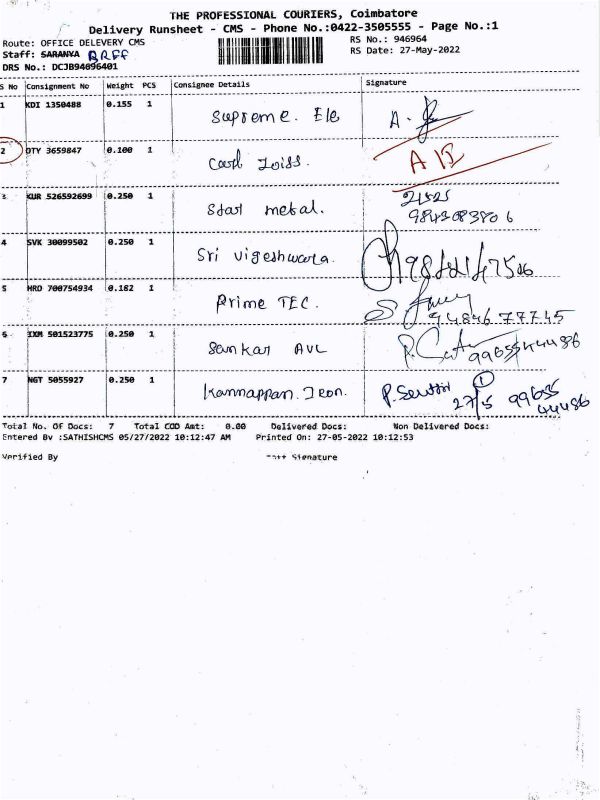 THE PROFESSIONAL COURIERS, Coimbatore
Delivery Runsheet - CMS - Phone No.:0422-3505555 - Page No.:1
Route: OFFICE DELEVERY CMS
RS No.: 946964
Staff: SARANYA
RS Date: 27-May-2022
DRS No.: DCJB94096401
S No Consignment No Weight PCS Consignee Details Signature
1 KDI 1350488 0.155 1 Supreme. Ele A.
2 QTY 3659847 0.100 1 Carl Zoiss.
3 KUR 526592699 0.250 1 Star metal.
4 SVK 30099502 0.250 1 Sri vigeshwara.
5 HRD 700754934 0.182 1 Prime TEC. 9484677745
6 IXM 501523775 0.250 1 Sankar AVL 9965544486
7 NGT 5055927 0.250 1 Kannappan. Jeon. 27/5 99655 44486
Total No. Of Docs: 7 Total COD Amt: 0.00 Delivered Docs: Non Delivered Docs:
Entered By :SATHISHCMS 05/27/2022 10:12:47 AM Printed On: 27-05-2022 10:12:53
Verified By Signature